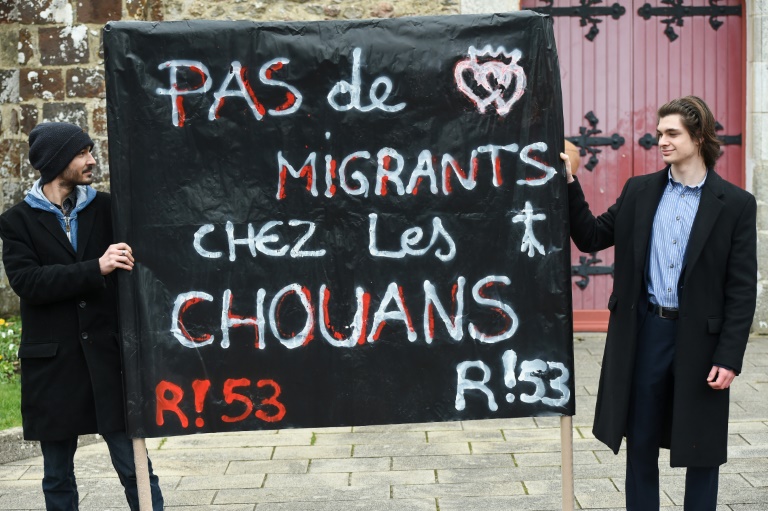 PAS de
MIGRANTS
CHEZ Les
CHOUANS
R!53 R!53